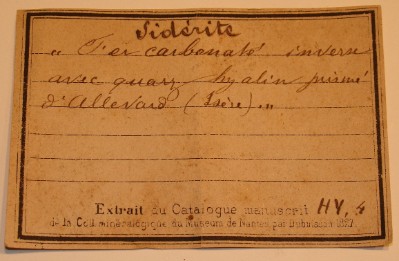 Sidérite
„ Fer carbonaté invers
avec quarz hyalin prismé
d'Allevard (Isère) „
Extrait du Catalogue manuscrit HY, 4
de la Coll. minéralogique du Museum de Nantes par Dubuisson 1827.